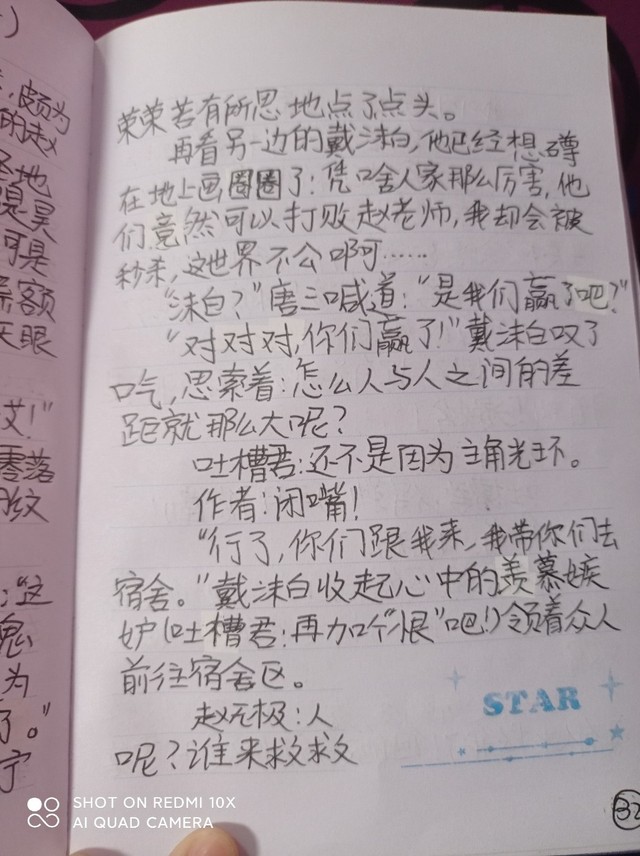 荣荣若有所思地点了点头。
再看另一边的戴沐白,他已经想蹲
在地上画圈圈了:凭啥人家那么厉害,他
们竟然可以打败赵老师,我却会被
秒杀,这世界不公啊……
"沐白?"唐三喊道:"是我们赢了吧?"
"对对对,你们赢了!"戴沐白叹了
口气,思索着:怎么人与人之间的差
距就那么大呢?
吐槽君:还不是因为主角光环。
作者:闭嘴!
"行了,你们跟我来,我带你们去
宿舍。"戴沐白收起心中的羡慕嫉
妒(吐槽君:再加个"恨"吧!)领着众人
前往宿舍区。
赵无极:人
呢?谁来救救
STAR
32
)
,颇为
的赵
圣地
昊
可是
额
天眼
艾!"
零落
纹
:"这
鬼
为
了。"
宁
SHOT ON REDMI 10X
AI QUAD CAMERA